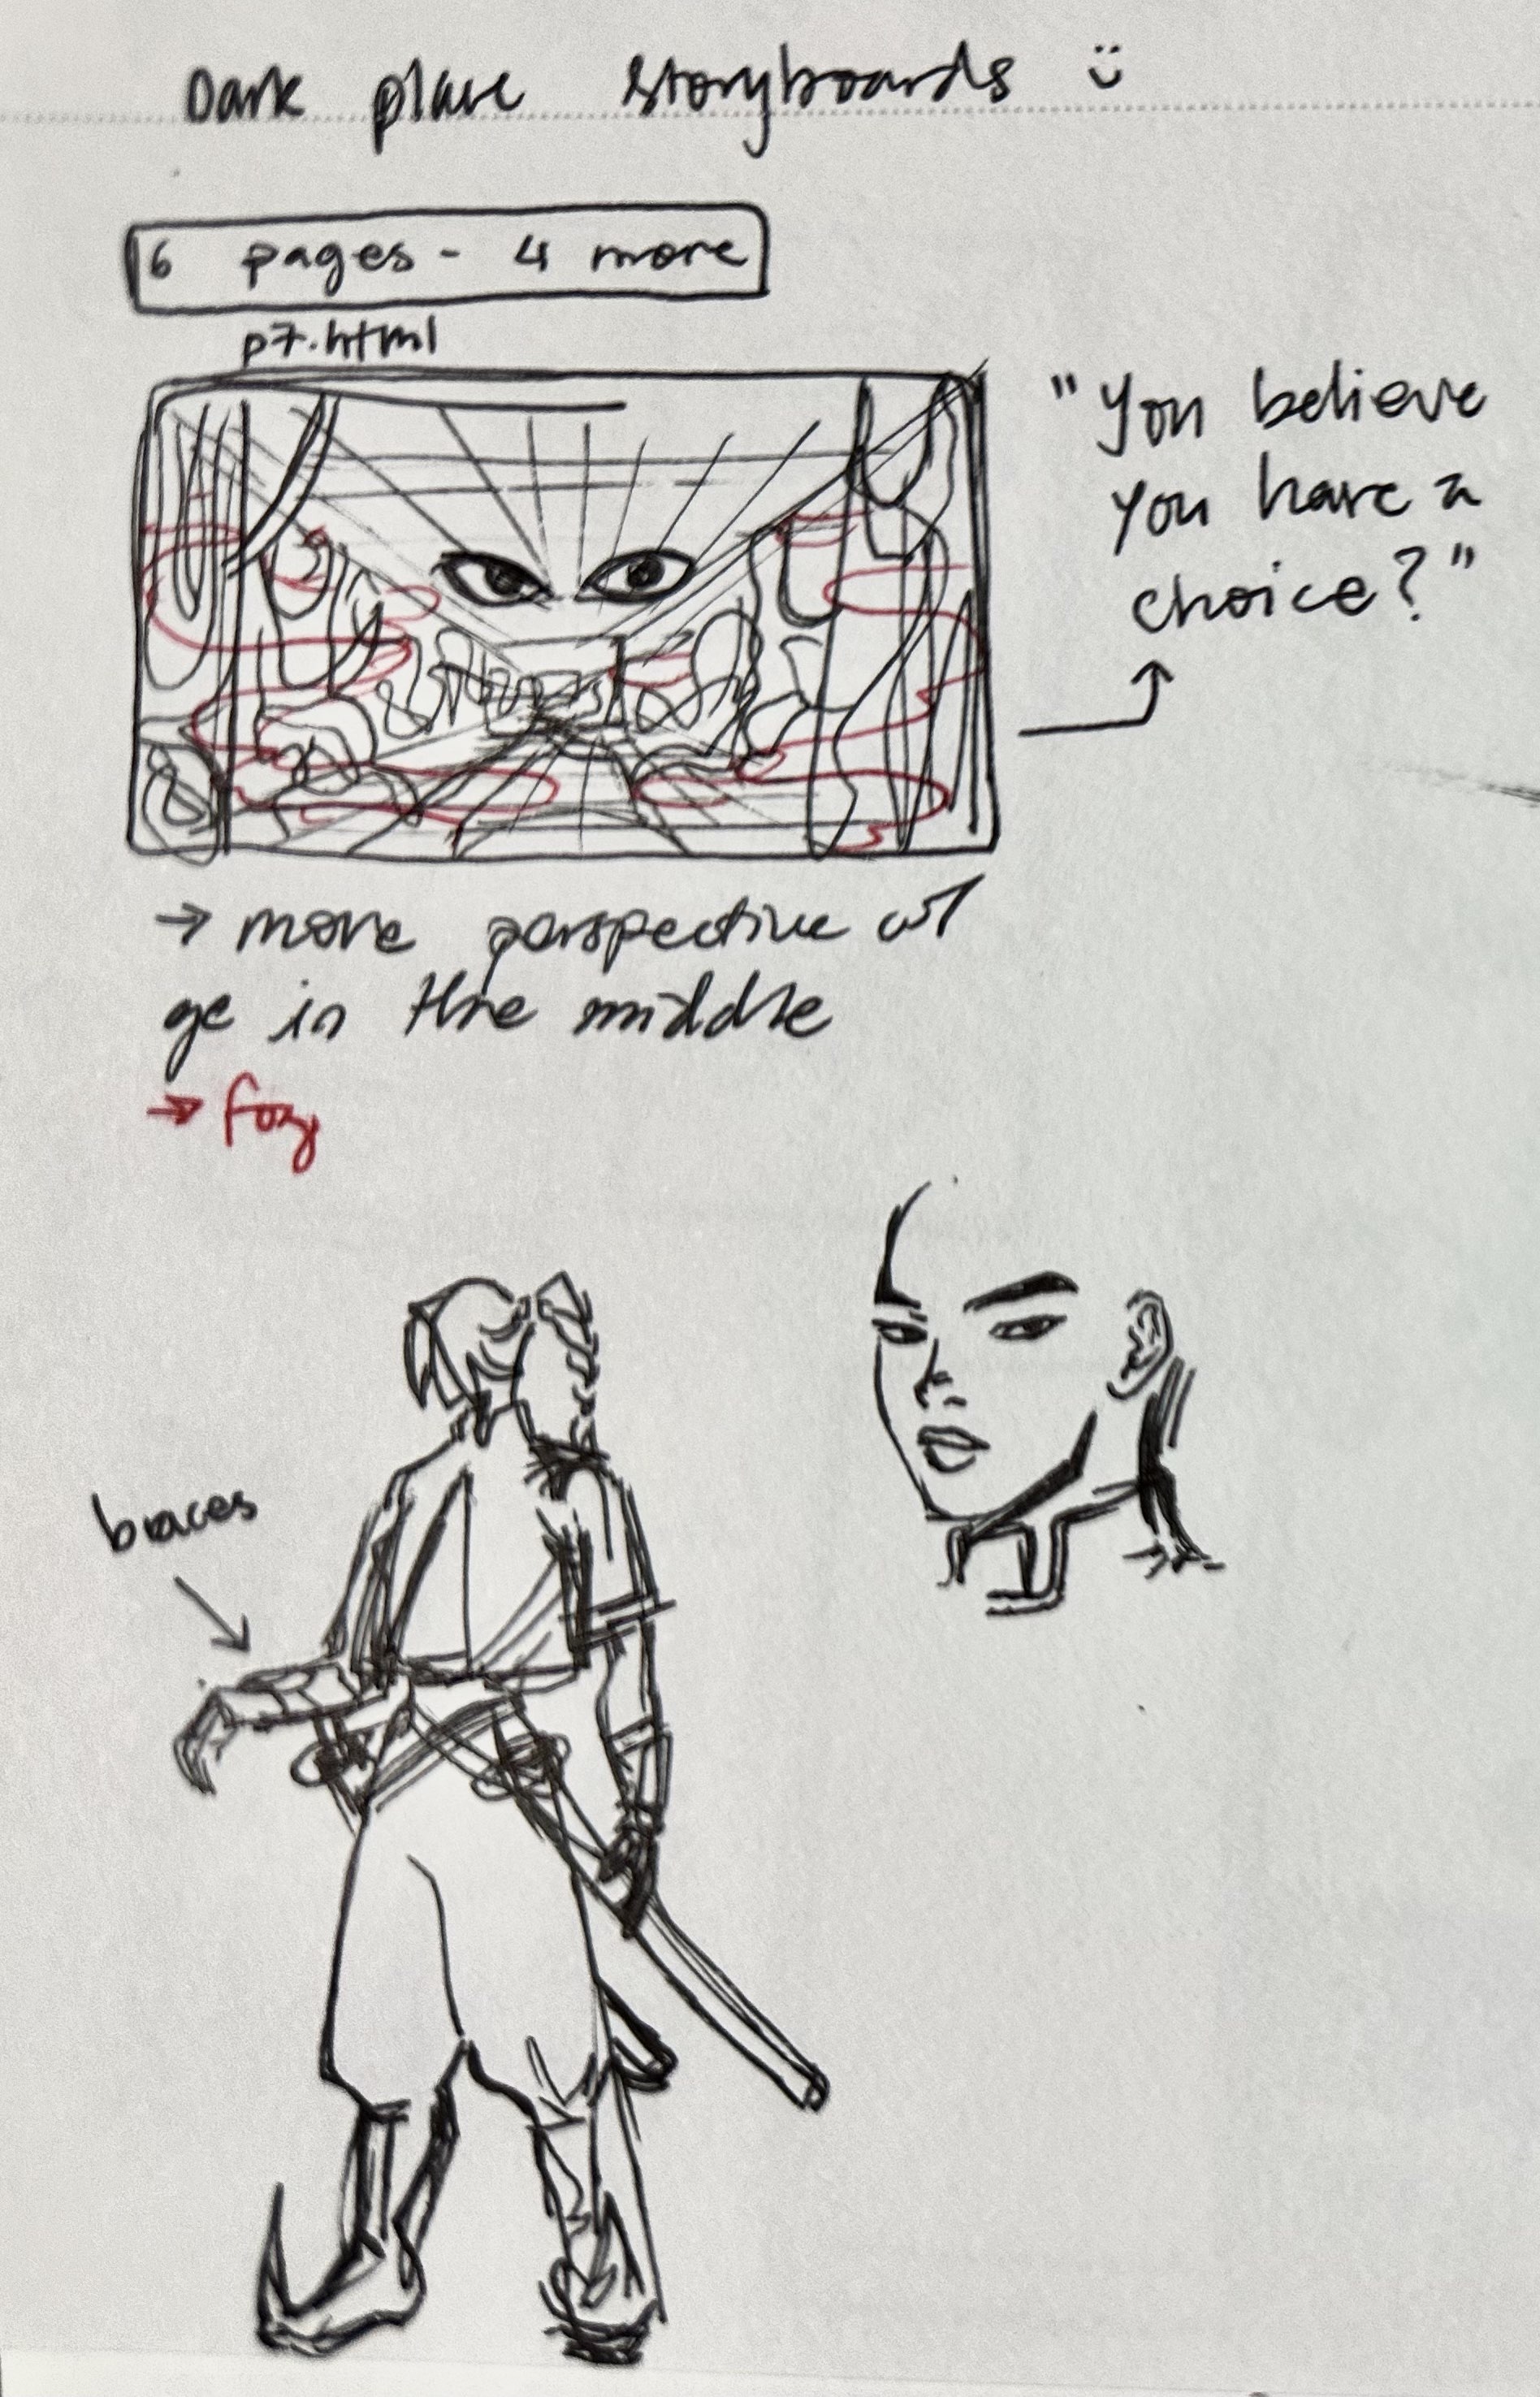 Dark place storyboards
6 pages - 4 more
p7.html
"You believe
you have a
choice?"
→ more perspective w/
ge in the middle
→ fog
braces